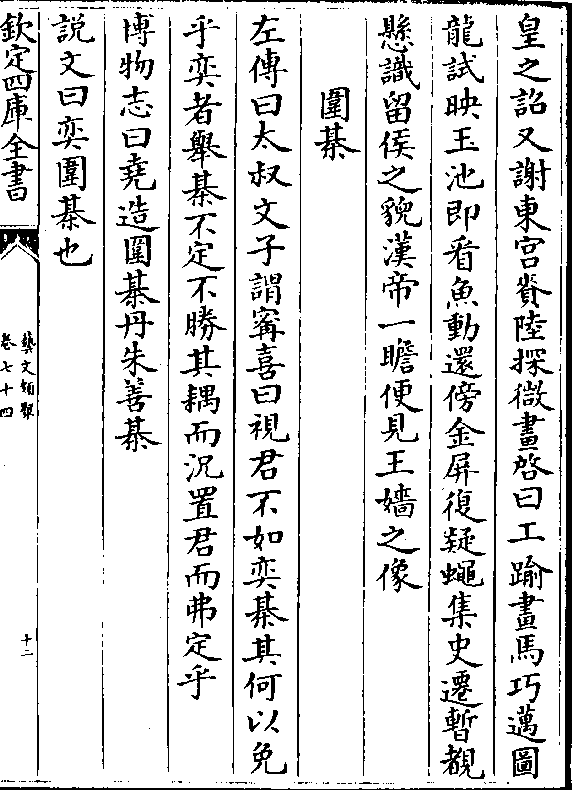 皇之詔又謝東宮賚陸探微畫啓曰工踰畫馬巧邁圖
龍試映玉池即看魚動還傍金屏復疑蠅集史遷暫覩
懸識留侯之貌漢帝一瞻便見王嬙之像
圍棊
左傳曰太叔文子謂寗喜曰視君不如奕棊其何以免
乎奕者舉棊不定不勝其耦而況置君而弗定乎
博物志曰堯造圍棊丹朱善棊
說文曰奕圍棊也
欽定四庫全書
藝文類聚
卷七十四
十二